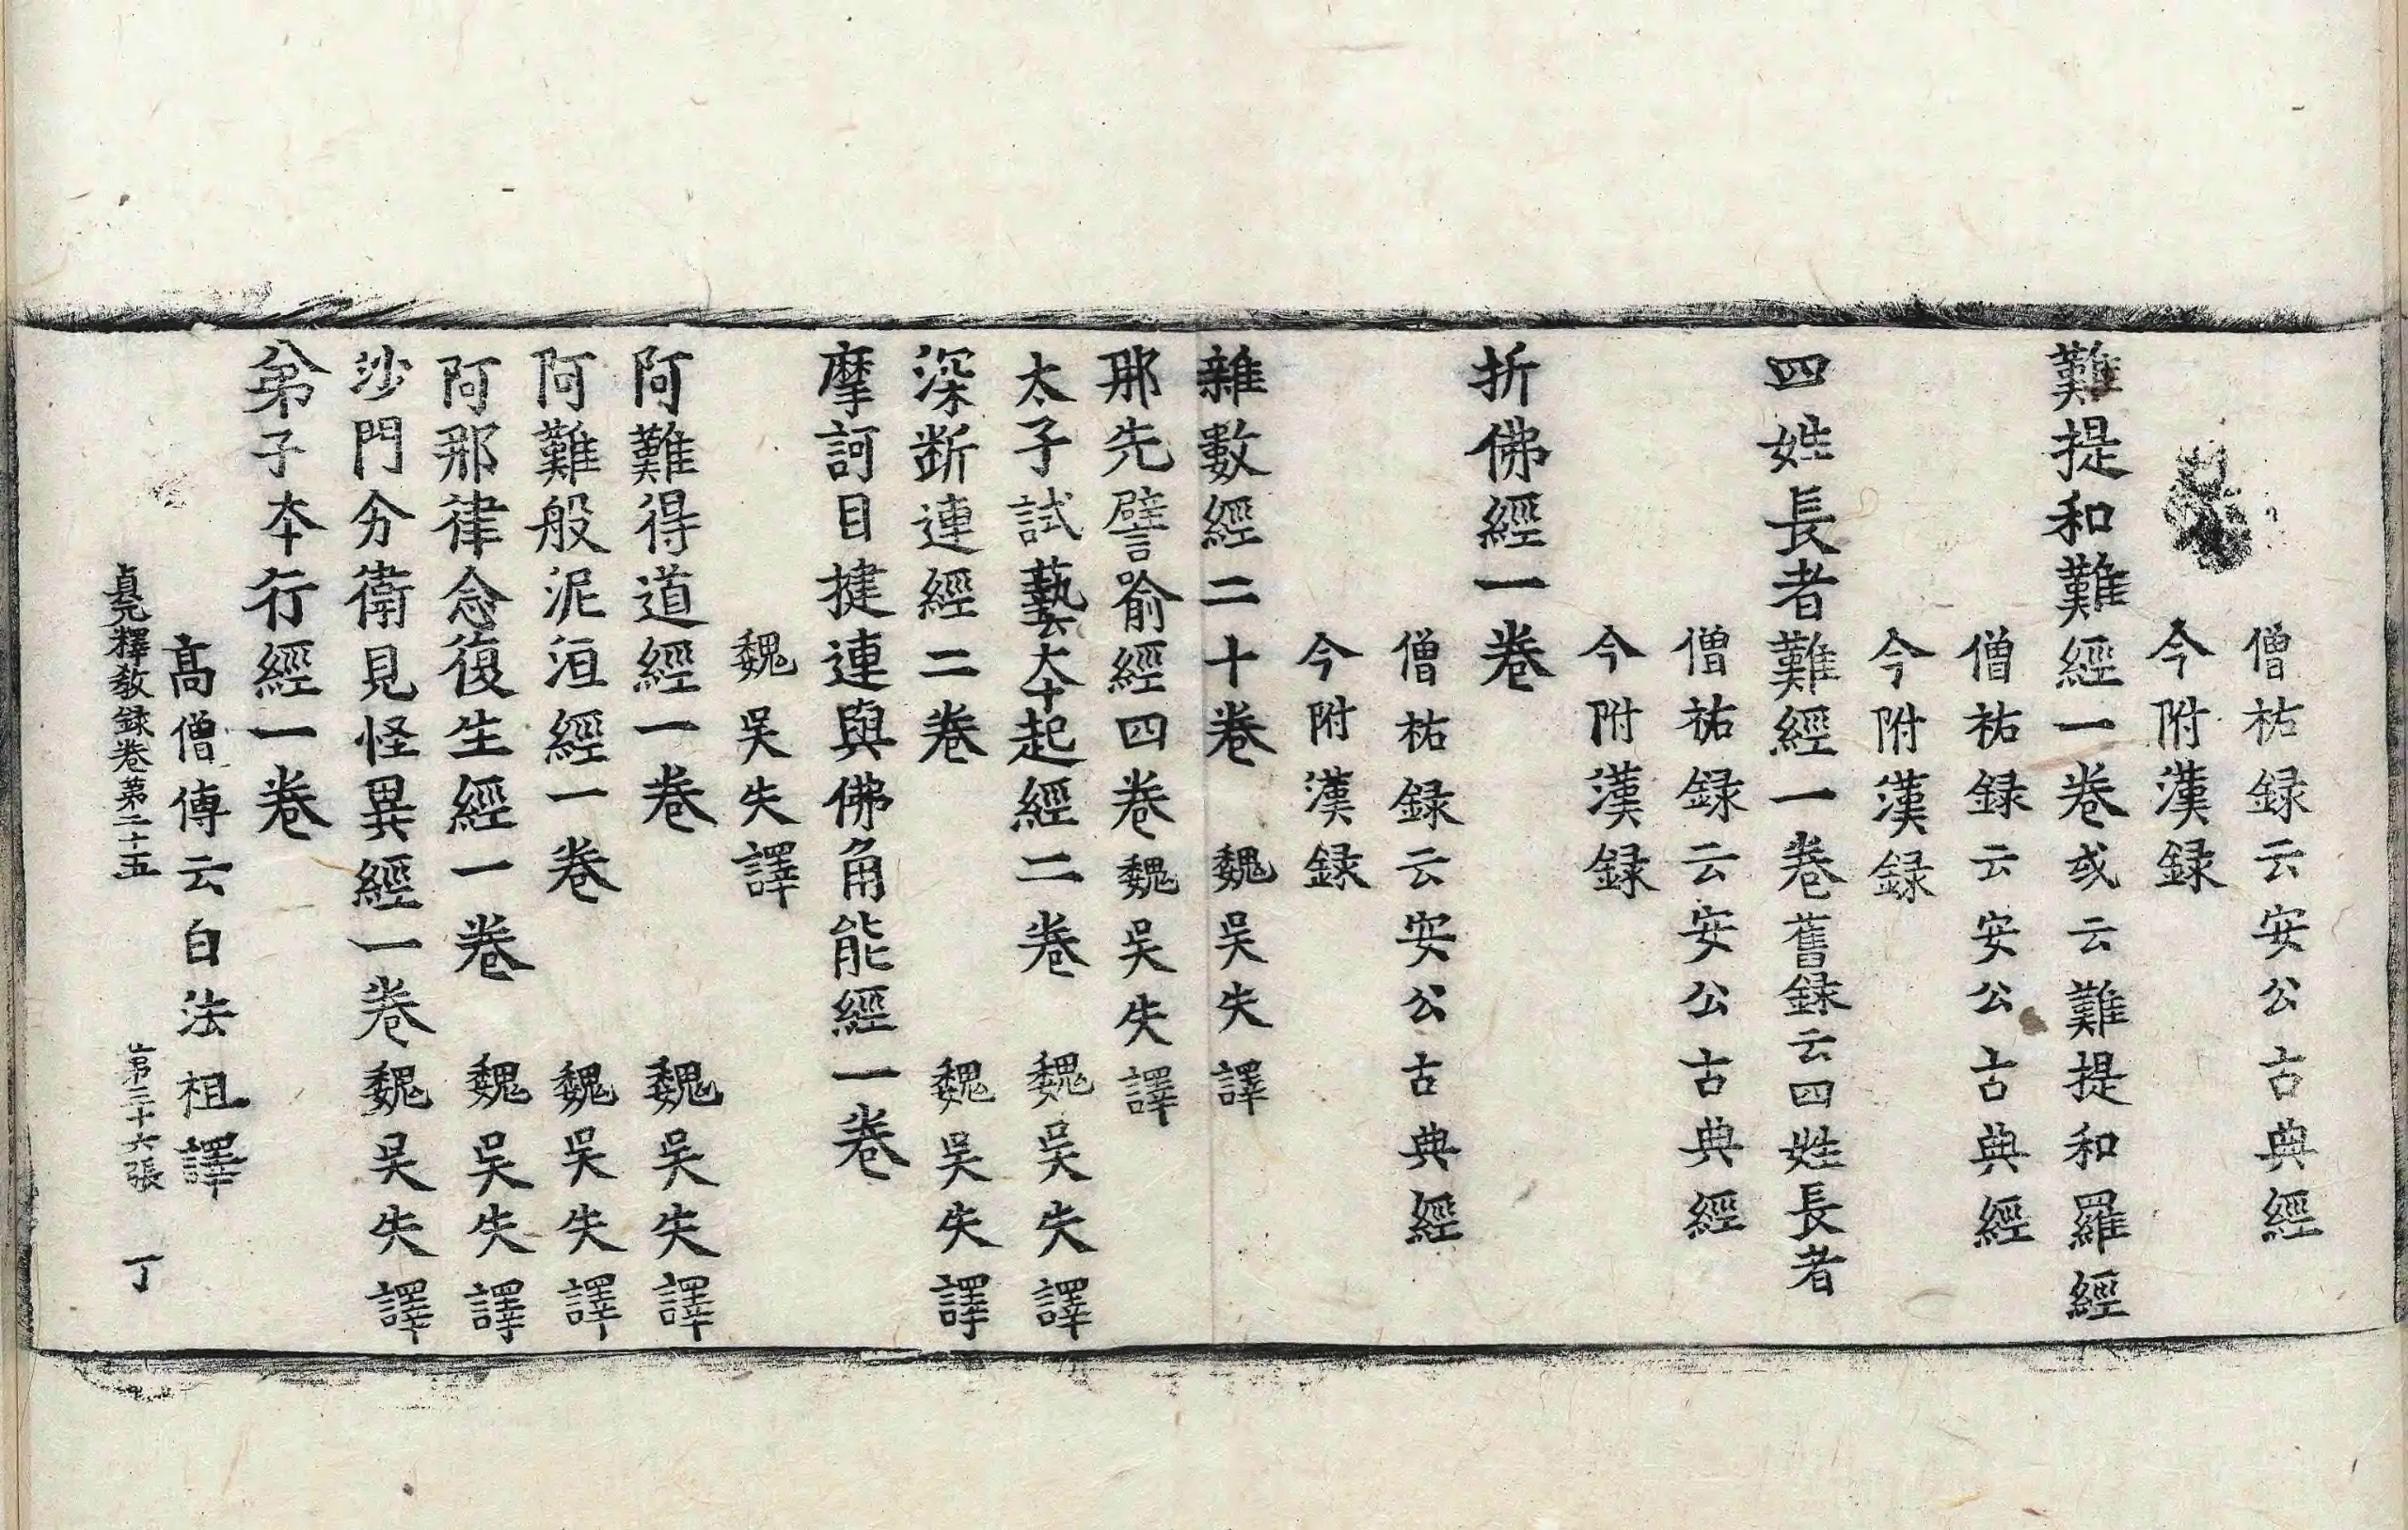 僧祐録云安公古典經
今附漢録
難提和難經一卷或云難提和羅經
僧祐録云安公古典經
今附漢録
四姓長者難經一卷舊録云四姓長者
僧祐録云安公古典經
今附漢録
折佛經一卷
僧祐録云安公古典經
今附漢録
雜數經二十卷 魏吳失譯
那先譬喻經四卷 魏吳失譯
太子試藝本起經二卷 魏吳失譯
深斷連經二卷 魏吳失譯
摩訶目揵連與佛角能經一卷
魏吳失譯
阿難得道經一卷 魏吳失譯
阿難般泥洹經一卷 魏吳失譯
阿那律念復生經一卷 魏吳失譯
沙門分衛見怪異經一卷 魏吳失譯
弟子本行經一卷
高僧傳云白法祖譯
貞元釋教録卷第二十五 第三十六張 丁